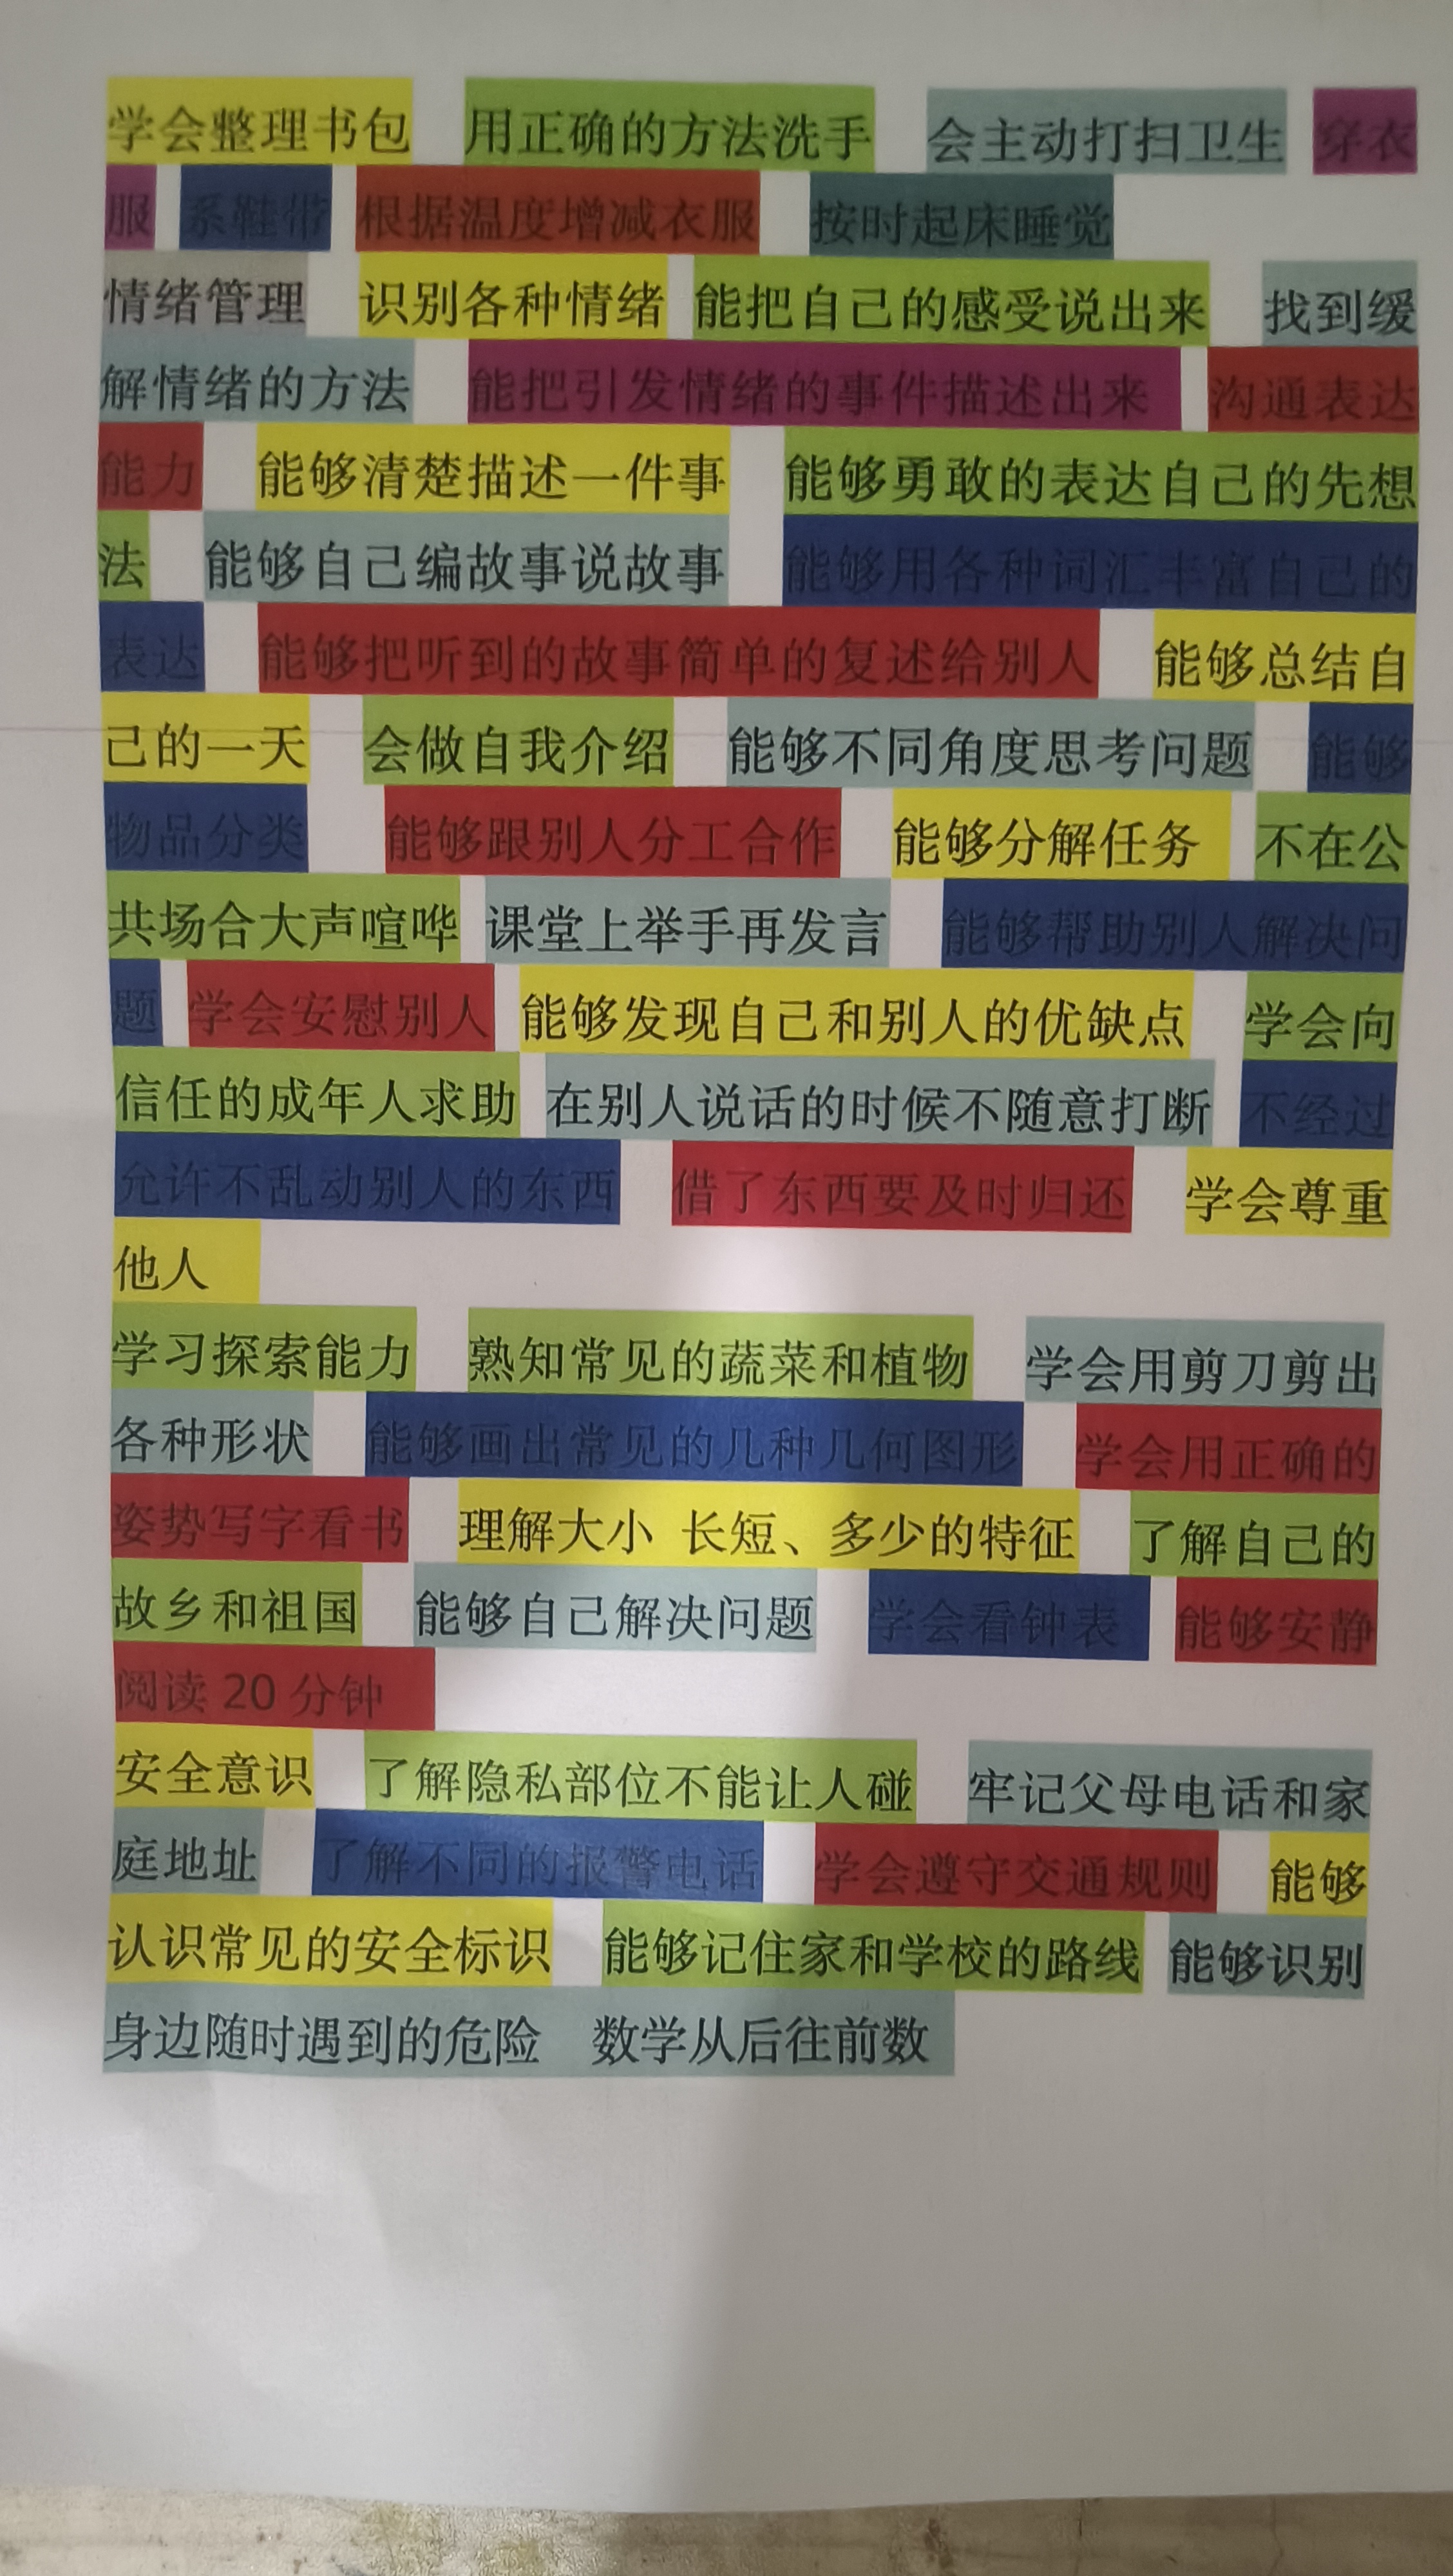 学会整理书包 用正确的方法洗手 会主动打扫卫生 穿衣
服 系鞋带 根据温度增减衣服 按时起床睡觉
情绪管理 识别各种情绪 能把自己的感受说出来 找到缓
解情绪的方法 能把引发情绪的事件描述出来 沟通表达
能力 能够清楚描述一件事 能够勇敢的表达自己的先想
法 能够自己编故事说故事 能够用各种词汇丰富自己的
表达 能够把听到的故事简单的复述给别人 能够总结自
己的一天 会做自我介绍 能够不同角度思考问题 能够
物品分类 能够跟别人分工合作 能够分解任务 不在公
共场合大声喧哗 课堂上举手再发言 能够帮助别人解决问
题 学会安慰别人 能够发现自己和别人的优缺点 学会向
信任的成年人求助 在别人说话的时候不随意打断 不经过
允许不乱动别人的东西 借了东西要及时归还 学会尊重
他人
学习探索能力 熟知常见的蔬菜和植物 学会用剪刀剪出
各种形状 能够画出常见的几种几何图形 学会用正确的
姿势写字看书 理解大小 长短、多少的特征 了解自己的
故乡和祖国 能够自己解决问题 学会看钟表 能够安静
阅读 20 分钟
安全意识 了解隐私部位不能让人碰 牢记父母电话和家
庭地址 了解不同的报警电话 学会遵守交通规则 能够
认识常见的安全标识 能够记住家和学校的路线 能够识别
身边随时遇到的危险 数学从后往前数